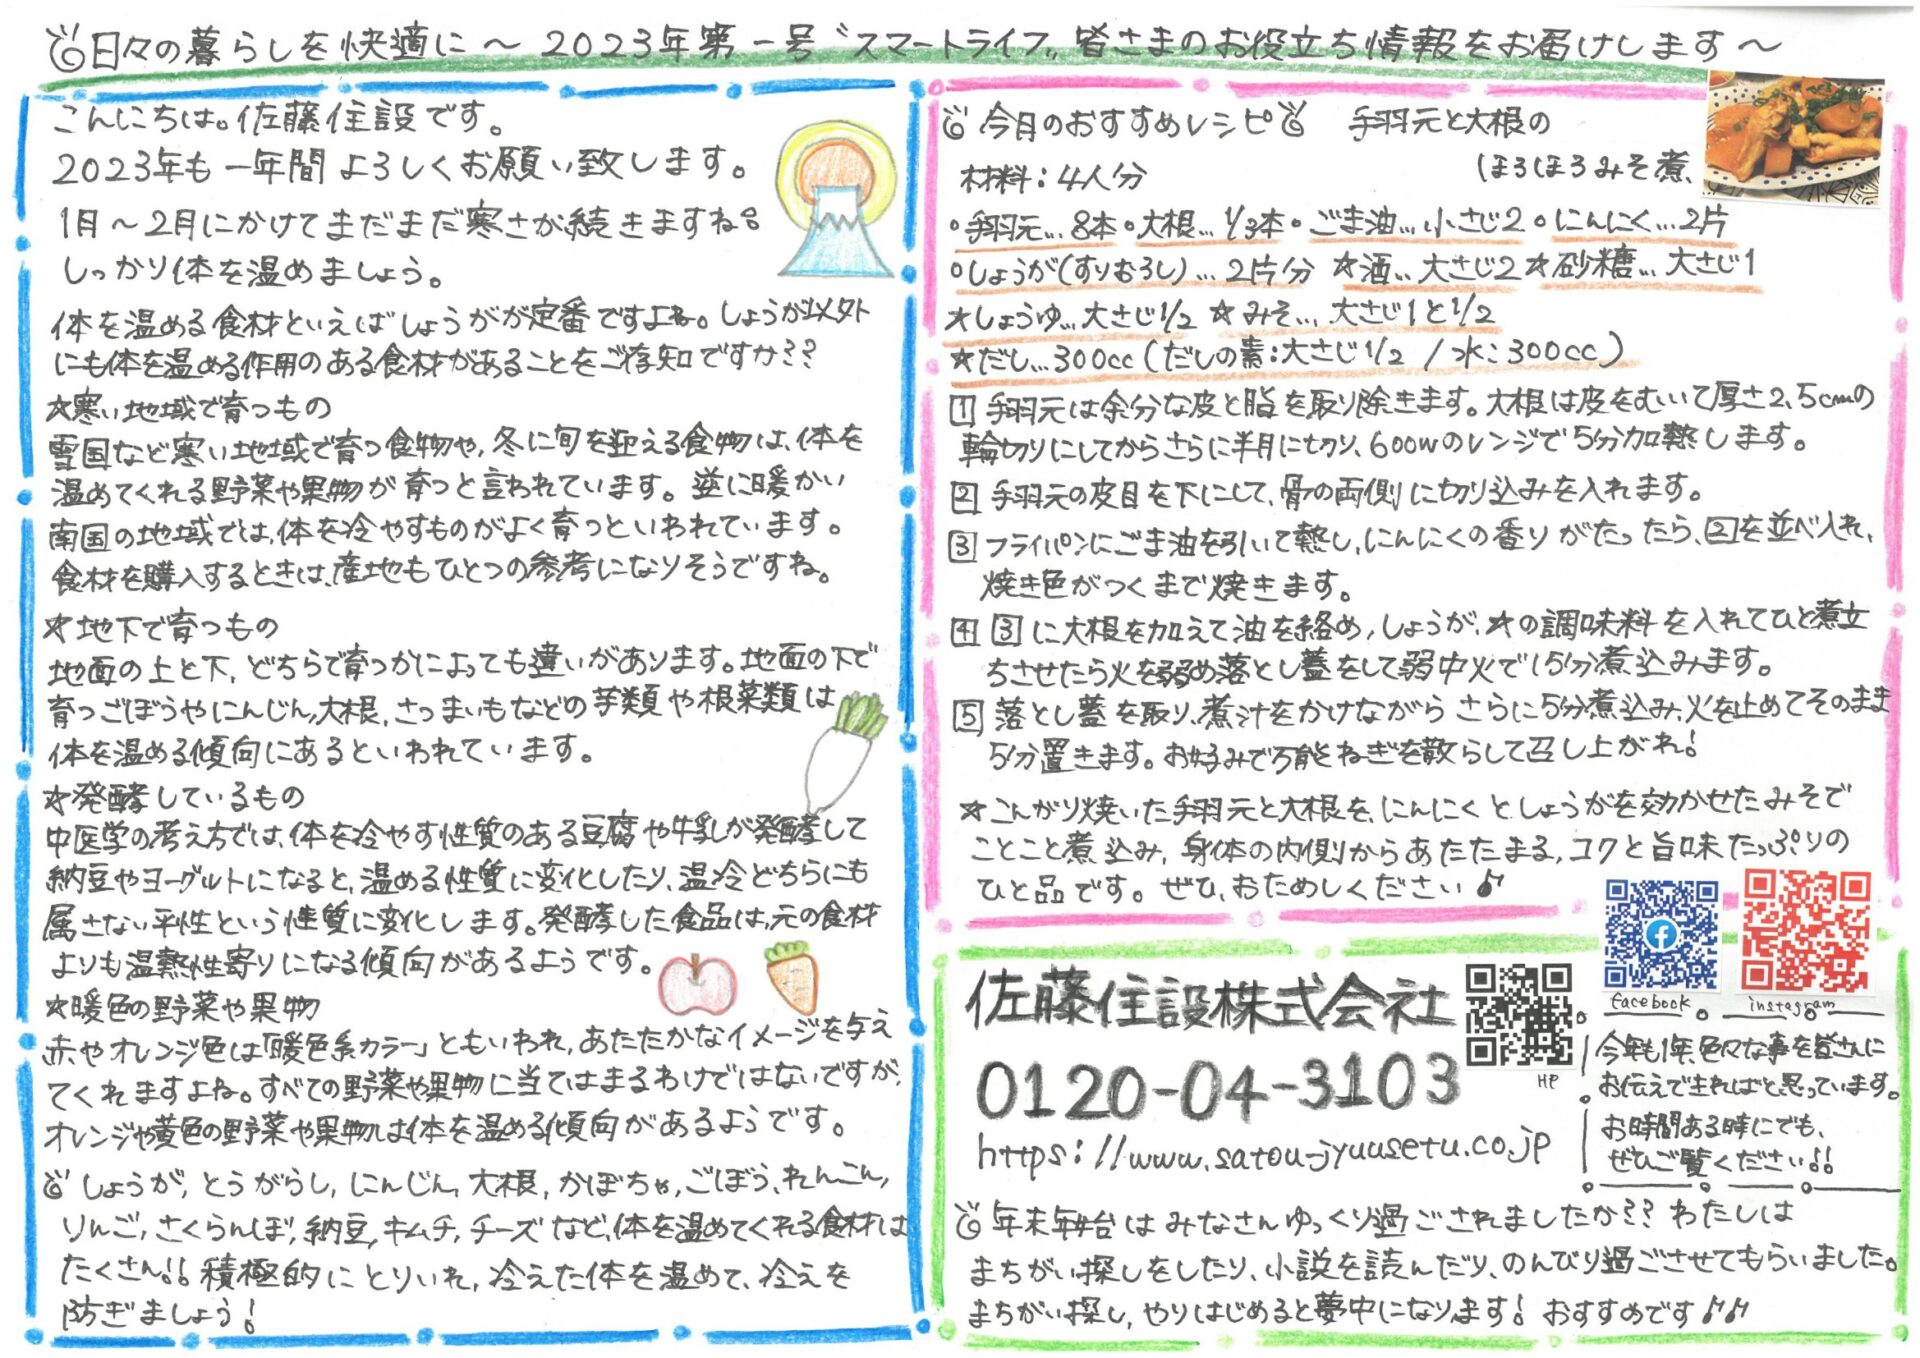 日々の暮らしを快適に～2023年第一号〝スマートライフ〟皆さまのお役立ち情報をお届けします～
こんにちは。佐藤住設です。
2023年も一年間よろしくお願い致します。
1月～2月にかけてまだまだ寒さが続きますね。
しっかり体を温めましょう。
体を温める食材といえばしょうがが定番ですよね。しょうが以外
にも体を温める作用のある食材があることをご存知ですか??
☆寒い地域で育つもの
雪国など寒い地域で育つ食物や、冬に旬を迎える食物は、体を
温めてくれる野菜や果物が育つと言われています。逆に暖かい
南国の地域では、体を冷やすものがよく育つといわれています。
食材を購入するときは、産地もひとつの参考になりそうですね。
☆地下で育つもの
地面の上と下、どちらで育つかによっても違いがあります。地面の下で
育つごぼうやにんじん、大根、さつまいもなどの芋類や根菜類は
体を温める傾向にあるといわれています。
☆発酵しているもの
中医学の考え方では、体を冷やす性質のある豆腐や牛乳が発酵して
納豆やヨーグルトになると、温める性質に変化したり、温冷どちらにも
属さない平性という性質に変化します。発酵した食品は、元の食材
よりも温熱性寄りになる傾向があるようです。
☆暖色の野菜や果物
赤やオレンジ色は「暖色系カラー」ともいわれ、あたたかなイメージを与え
てくれますよね。すべての野菜や果物に当てはまるわけではないですが、
オレンジや黄色の野菜や果物は体を温める傾向があるようです。
しょうが、とうがらし、にんじん、大根、かぼちゃ、ごぼう、れんこん、
りんご、さくらんぼ、納豆、キムチ、チーズなど、体を温めてくれる食材は
たくさん!!積極的にとりいれ、冷えた体を温めて、冷えを
防ぎましょう!
今月のおすすめレシピ 手羽元と大根の
ほろほろみそ煮
材料：4人分
・手羽元…8本・大根…1/3本・ごま油…小さじ2・にんにく…2片
・しょうが(すりおろし)…2片分 ☆酒…大さじ2☆砂糖…大さじ1
☆しょうゆ…大さじ1/2 ☆みそ…大さじ1と1/2
☆だし…300cc(だしの素：大さじ1/2 / 水：300cc)
1 手羽元は余分な皮と脂を取り除きます。大根は皮をむいて厚さ2.5cmの
輪切りにしてからさらに半月に切り、600wのレンジで5分加熱します。
2 手羽元の皮目を下にして、骨の両側に切り込みを入れます。
3 フライパンにごま油を引いて熱し、にんにくの香りがたったら、2を並べ入れ、
焼き色がつくまで焼きます。
4 3に大根を加えて油を絡め、しょうが、☆の調味料を入れてひと煮立
ちさせたら火を弱め落とし蓋をして弱中火で15分煮込みます。
5 落とし蓋を取り、煮汁をかけながらさらに5分煮込み、火を止めてそのまま
5分置きます。お好みで万能ねぎを散らして召し上がれ!
☆こんがり焼いた手羽元と大根を、にんにくとしょうがを効かせたみそで
ことこと煮込み、身体の内側からあたたまる、コクと旨味たっぷりの
ひと品です。ぜひ、おためしください♪
佐藤住設株式会社
0120-04-3103
https://www.satou-jyuusetu.co.jp
HP
facebook
instagram
今年も1年、色々な事を皆さんに
お伝えできればと思っています。
お時間ある時にでも、
ぜひご覧ください!!
年末年始はみなさんゆっくり過ごされましたか??わたしは
まちがい探しをしたり、小説を読んだり、のんびり過ごさせてもらいました。
まちがい探し、やりはじめると夢中になります!おすすめです♪♪